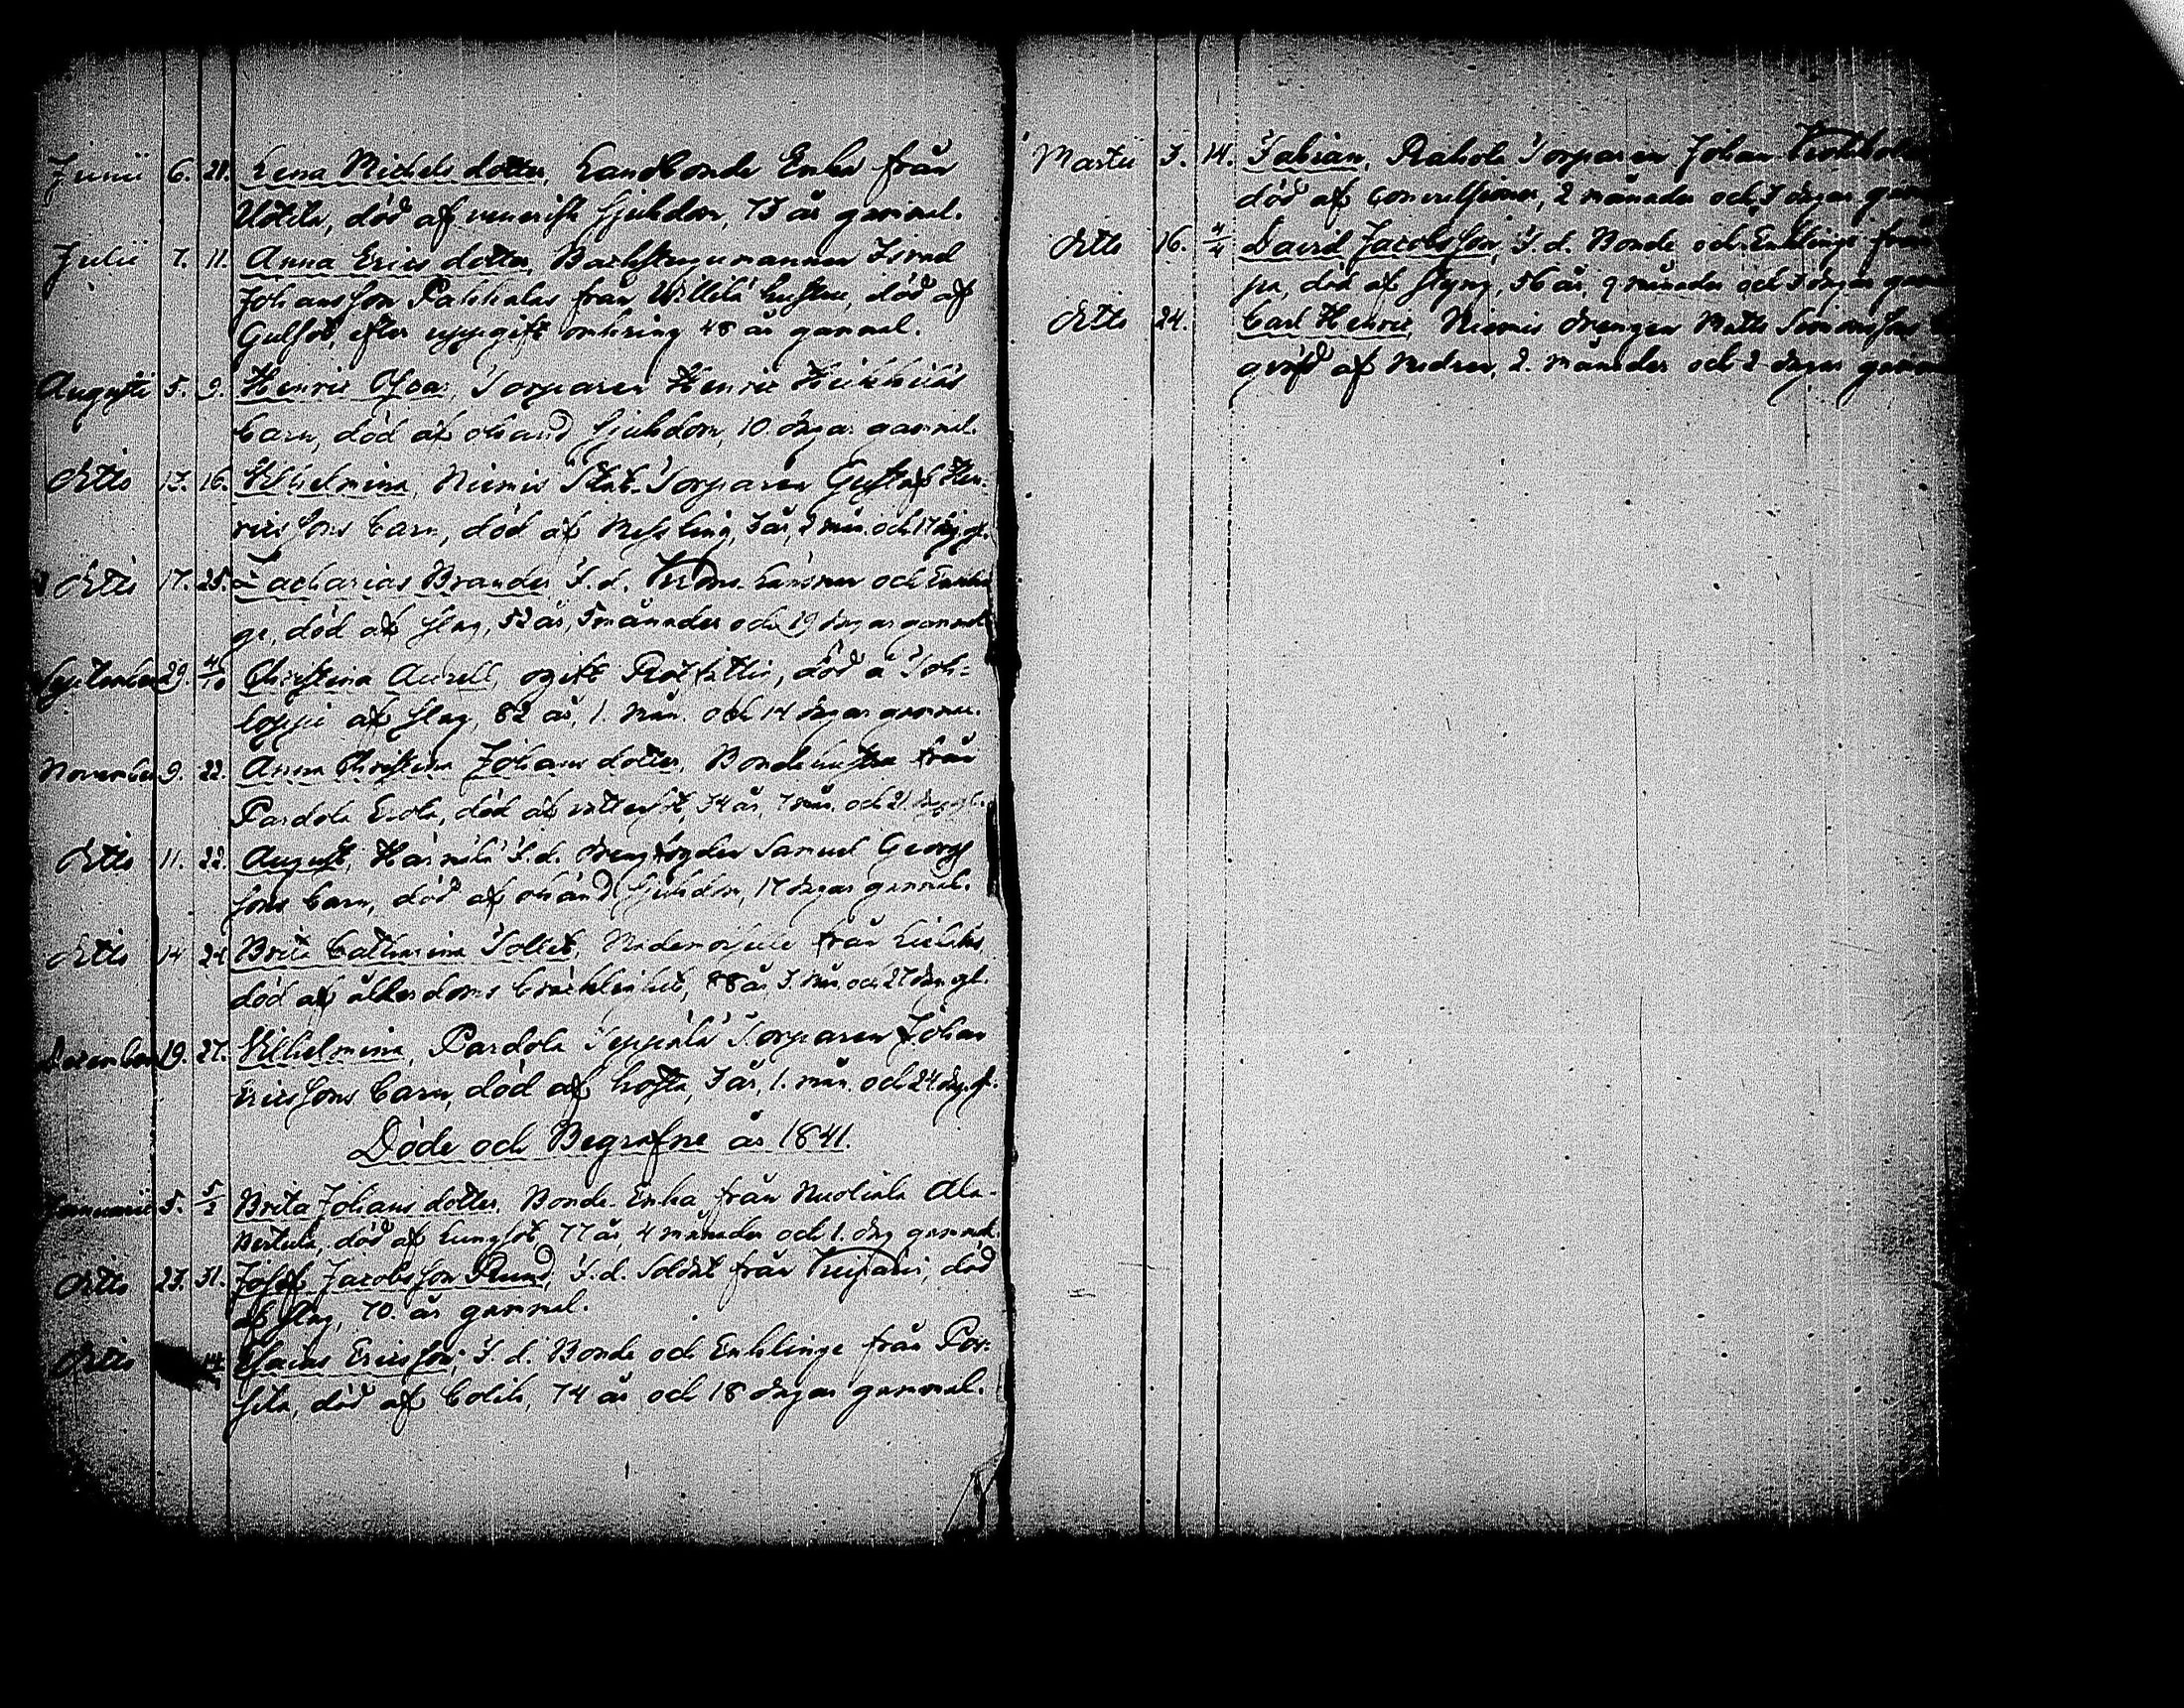 Junii 6. 28. Lena Michels dotter, Landbonde Enka från
Uotila, död af venerisk sjukdom, 73 år gammal.
Julii 7. 11. Anna Erics dotter, Backstugumannen Israel
Johansson Pakkalas från Willilä hustru, död af
Gulsot, efter uppgift omkring 48 år gammal.
Augusti 5. 9. Henric Oscar, Torparen Henric Heikkiläs
barn, död af okänd sjukdom, 10. dagar gammal.
Ditto 13. 16. Vilhelmina, Niemis Stat-Torparen Gustaf Hen-
rics sons barn, död af Messling, 3 år, 2 mån. och 17 dag. gl.
Ditto 17. 25. Zacharias Brander, F.d. Krono Länsman och Enklin
ge, död af slag, 52 år, 5 månader och 19 dagar gammal
September 29. 4/10 Christina Aurell, ogift Piga, död å Joh-
af slag, 82 år, 1. mån. och 14 dagar gammal.
November 9. 22. Anna Christina Johans dotter, Bondehustru från
Pardola Erola, död af vattusot, 34 år, 7 mån. och 21. dag. gl.
Ditto 11. 22. August, Härmälä F.d. Samuel Georgs
sons barn, död af okänd sjukdom, 17 dagar gammal.
Ditto 14 24 Brita Catharina Tollet, Mademoiselle från
död af ålderdoms bräcklighet, 88 år 3. mån och 27 dag. gl.
December 19. 27. Vilhelmina, Pardola Seppälä Torparen Johan
Ericssons barn, död af hosta, 3 år, 1. mån. och 24. dag. gl.
Döde och Begrafne år 1841.
Januarii 5. 5/2 Brita Johans dotter, Bonde-Enka från Nuoliala Ala-
Mertula, död af Lungsot, 77 år, 4 månader och 1. dag gammal.
Ditto 23. 31. Josef Jacobsson Rund, F.d. Soldat från död
af slag, 70. år gammal.
Ditto 14. Esaias Ericsson, F.d. Bonde och Enklinge från Por-
sila, död af Colik, 74 år och 18 dagar gammal.
Martii 3. 14. Fabian, Rahola Torparen Johan
död af convulsioner, 2 månader och 3 dagar gam
Ditto 16. 4/4 David Jacobsson, F.d. Bonde och Enklinge från
pa, död af styng, 56 år, 9 månader och 3 dagar gam
Ditto 24. Carl Henric, Niemis drengen Matts Simonssons
qväfd af modren, 2. månader och 2 dagar gamm